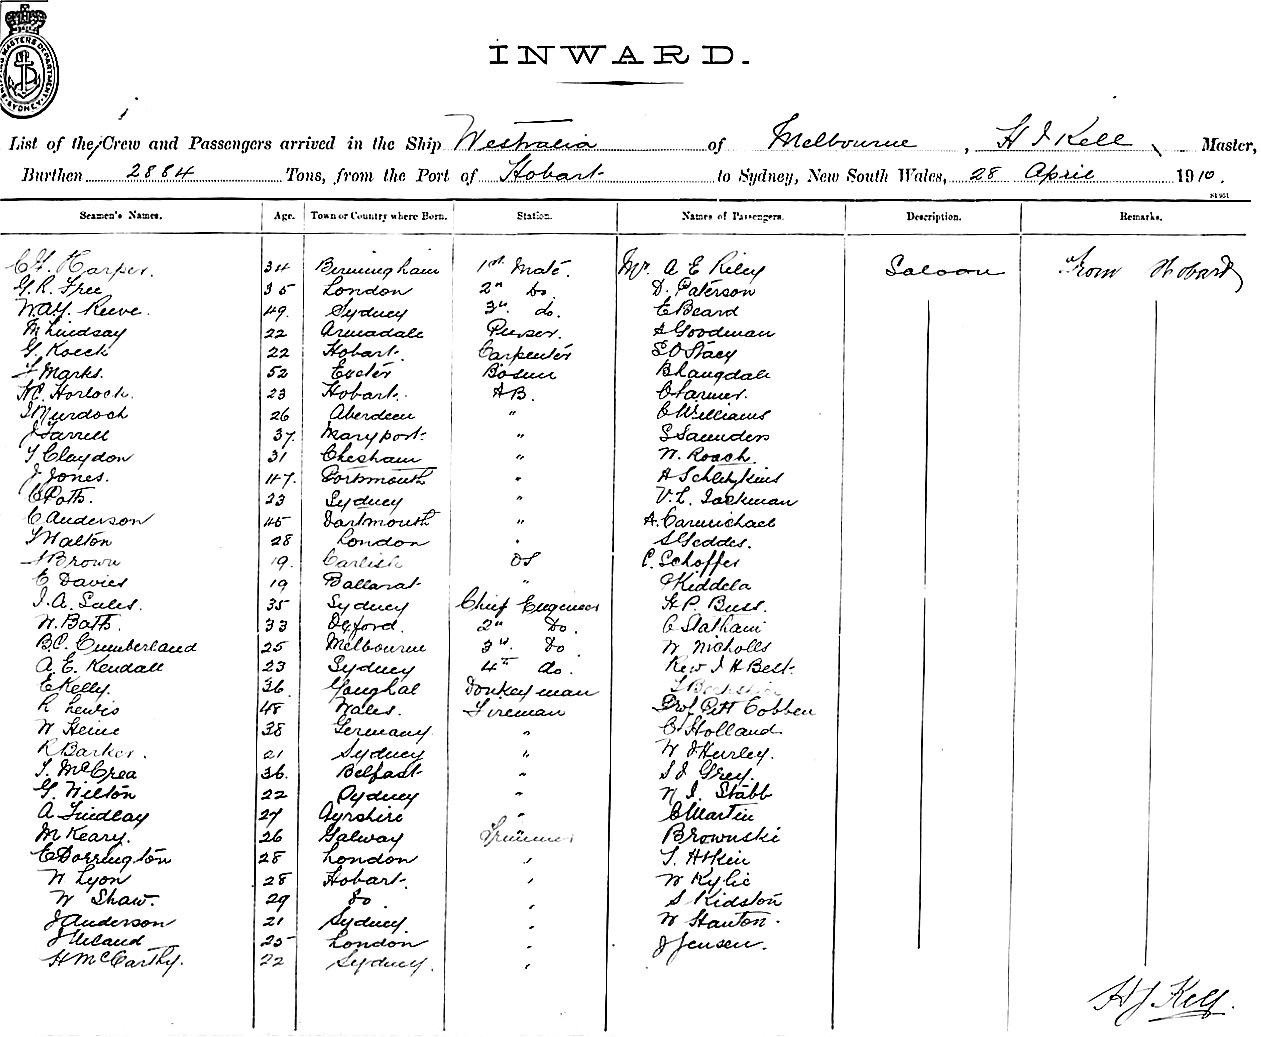 SHIPPING MASTERS DEPARTMENT SYDNEY
INWARD.
List of the Crew and Passengers arrived in the Ship Westralia of Melbourne, H J Kell Master,
Burthen 2884 Tons, from the Port of Hobart to Sydney, New South Wales, 28 April 1910.
Seamen's Names. Age. Town or Country where Born. Station. Names of Passengers. Description. Remarks.
Harper. 34 Birmingham 1st Mate. Mr. A E Riley Saloon From Hobart
G.R. Free 35 London 2" Do. D. Paterson
Way Reeve. 49. Sydney 3" do. E Beard
M Lindsay 22 Armadale Purser. A Goodman
G. Koeck 22 Hobart. Carpenter E O Stacy
F Marks. 52 Exeter Bosun B Langdale
H.C. Horlock. 23 Hobart. AB. C Farmer.
J Murdoch 26 Aberdeen " C Williams
J Farrell 37. Maryport. " S Saunders
T Claydon 31 Chesham " W. Roach.
J Jones. 47. Portsmouth " A
C Potts. 23 Sydney " V. L. Jackman
C Anderson 45 Dartmouth " A. Carmichael
Walton 28 London " S Geddes.
Brown 19. OS C. Schoffer
E Davies 19 Ballarat " Kiddela
J. A. Sales. 35 Sydney Chief Engineer H P. Buss.
W. Bath. 33 Oxford. 2" Do. C Statham
B.C. Cumberland 25 Melbourne 3" Do. W Nicholls
A E. Kendall 23 Sydney 4th do. Rev J H Belt
E Kelly. 36 Youghal Donkeyman
R Lewis 48 Wales. Fireman Prof Pitt Cobben
W Heine 38 Germany " C Holland
R Barker. 21 Sydney " W J Hurley.
T. McCrea 36. Belfast " S J Grey.
G. Wilton 22 Sydney " N J. Stabb
A Findlay 27 Ayrshire " C Martin
M Keary. 26 Galway Trimmer Brownski
C Dorrington 28 London " T. Atkin
W Lyon 28 Hobart. " W Kylie
W Shaw. 29 Do. " S Kidston
J Anderson 21 Sydney. " W Stanton.
25 London " J Jensen.
H McCarthy. 22 Sydney. "
H J Kell.